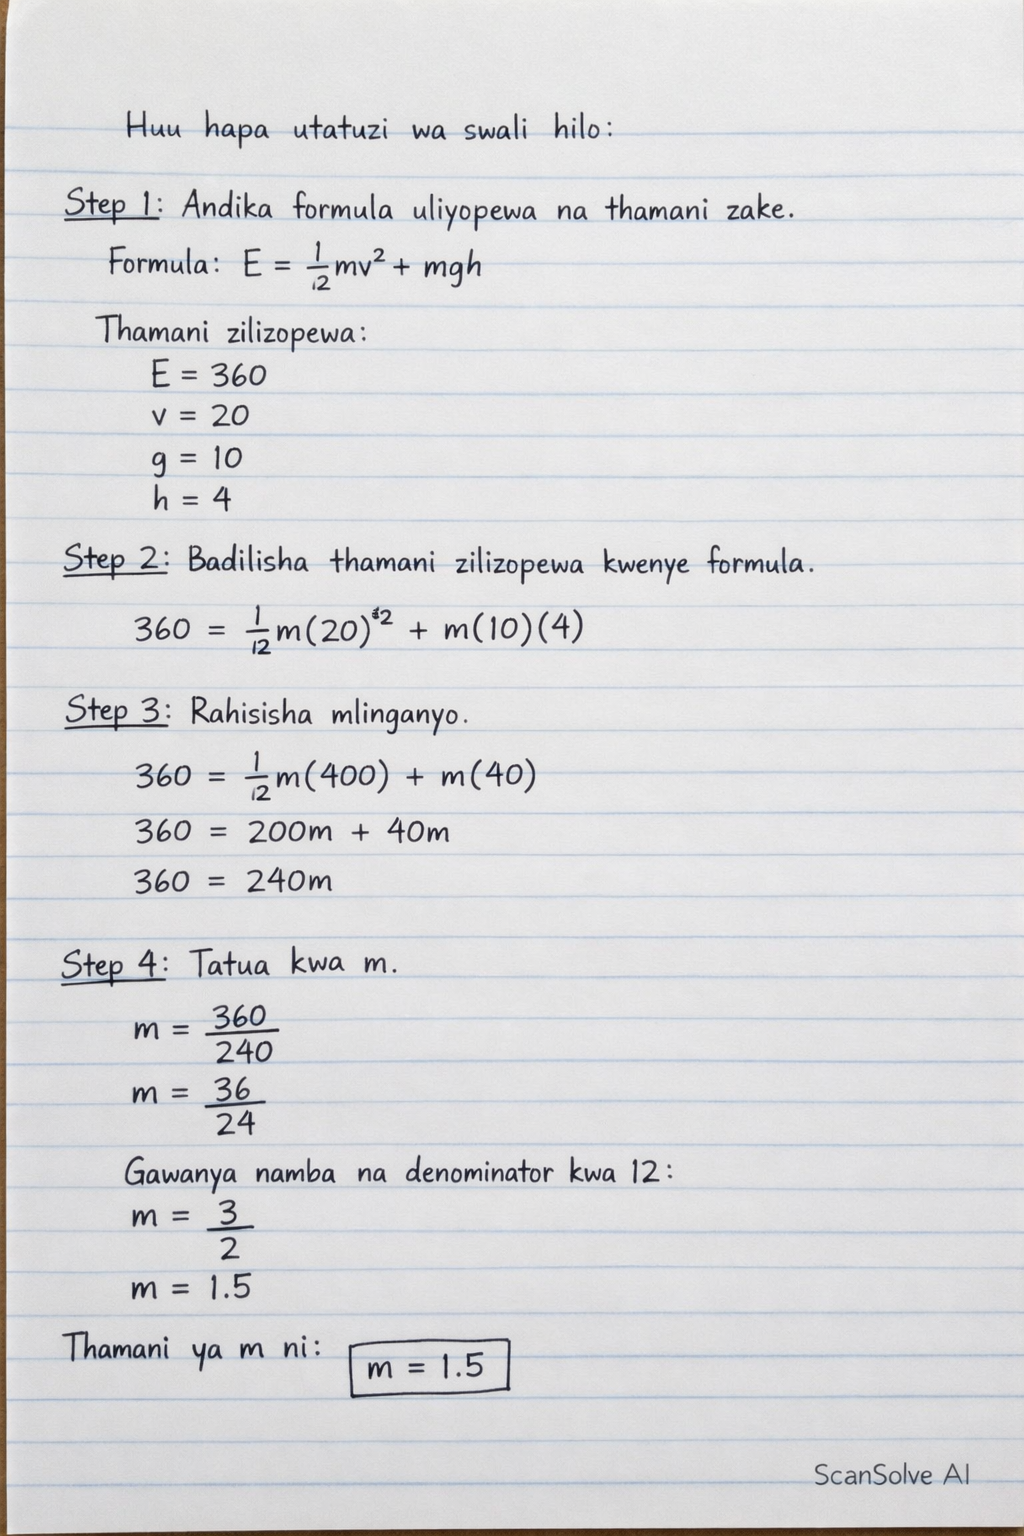 Huu hapa utatuzi wa swali hilo:
Step 1: Andika formula uliyopewa na thamani zake.
Formula: E = 1/12 mv² + mgh
Thamani zilizopewa:
E = 360
v = 20
g = 10
h = 4
Step 2: Badilisha thamani zilizopewa kwenye formula.
360 = 1/12 m(20)² + m(10)(4)
Step 3: Rahisisha mlinganyo.
360 = 1/12 m(400) + m(40)
360 = 200m + 40m
360 = 240m
Step 4: Tatua kwa m.
m = 360/240
m = 36/24
Gawanya namba na denominator kwa 12:
m = 3/2
m = 1.5
Thamani ya m ni: m = 1.5
ScanSolve AI